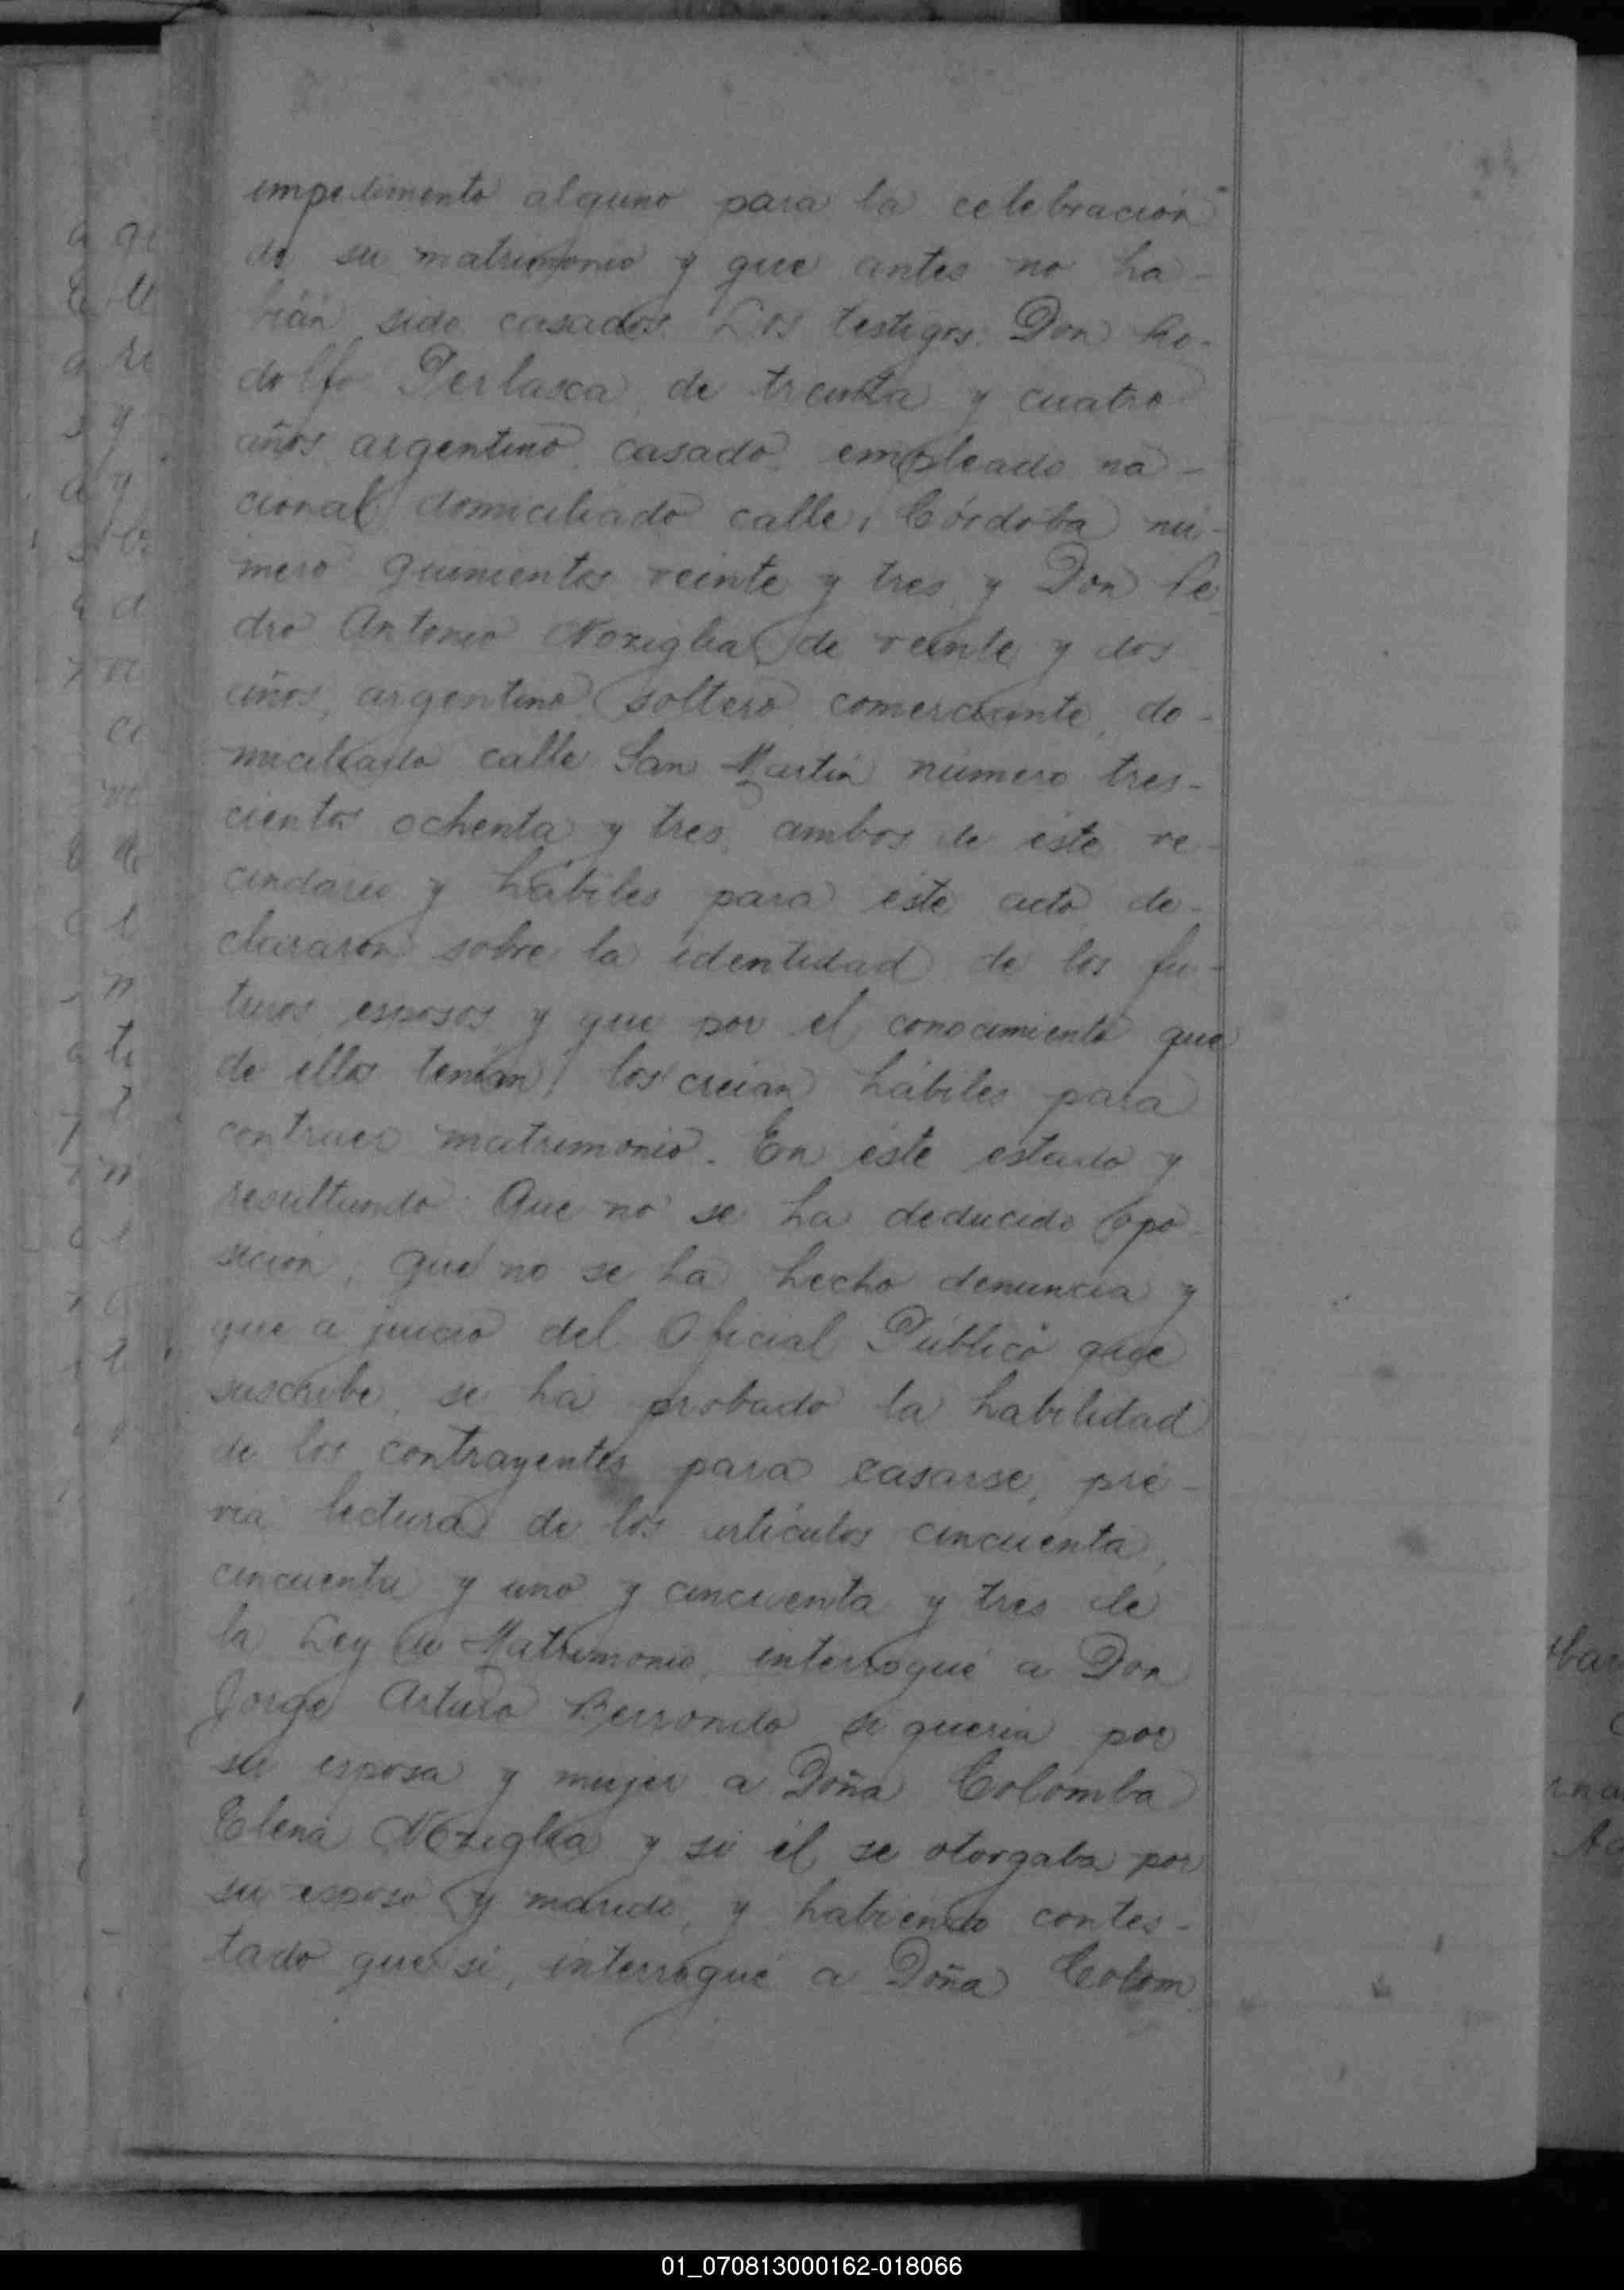 impedimento alguno para la celebración
de su matrimonio y que antes no ha-
bían sido casados. Los testigos: Don Ro-
dolfo Perlasca, de treinta y cuatro
años, argentino, casado, empleado na-
cional, domiciliado calle, Córdoba nú-
mero quinientos veinte y tres, y Don Pe
dro Antonio Noziglia, de veinte y dos
años, argentino, soltero, comerciante, do-
miciliado calle San Martín número tres-
cientos ochenta y tres, ambos de éste ve-
cindario y hábiles para éste acto, de-
clararon sobre la identidad de los fu-
turos esposos y que por el conocimiento que
de ellos tenían, los creían hábiles para
contraer matrimonio. En éste estado y
resultando: Que no se ha deducido opo
sición, que no se ha hecho denuncia y
que a juicio del Oficial Público que
suscribe, se ha probado la habilidad
de los contrayentes para casarse, pré-
via lectura de los artículos cincuenta,
cincuenta y uno y cincuenta y tres de
la Ley de Matrimonio, interrogué a Don
Jorge Arturo Berrondo si quería por
su esposa y mujer a Doña Colomba
Elena Noziglia y si él se otorgaba por
su esposo y marido, y habiendo contes-
tado que sí, interrogué a Doña Colom
01_070813000162-018066